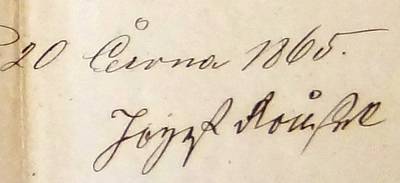 20 Června 1865.
Jozef Roušek